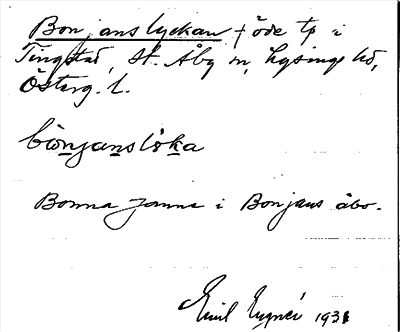 Bonjanslyckan † öde tp i
Tingstad, St. Åby sn, Lysings hd,
Österg. l.
bònjansløka
Bonna Janna i Bonjans åbo.
Emil 1931